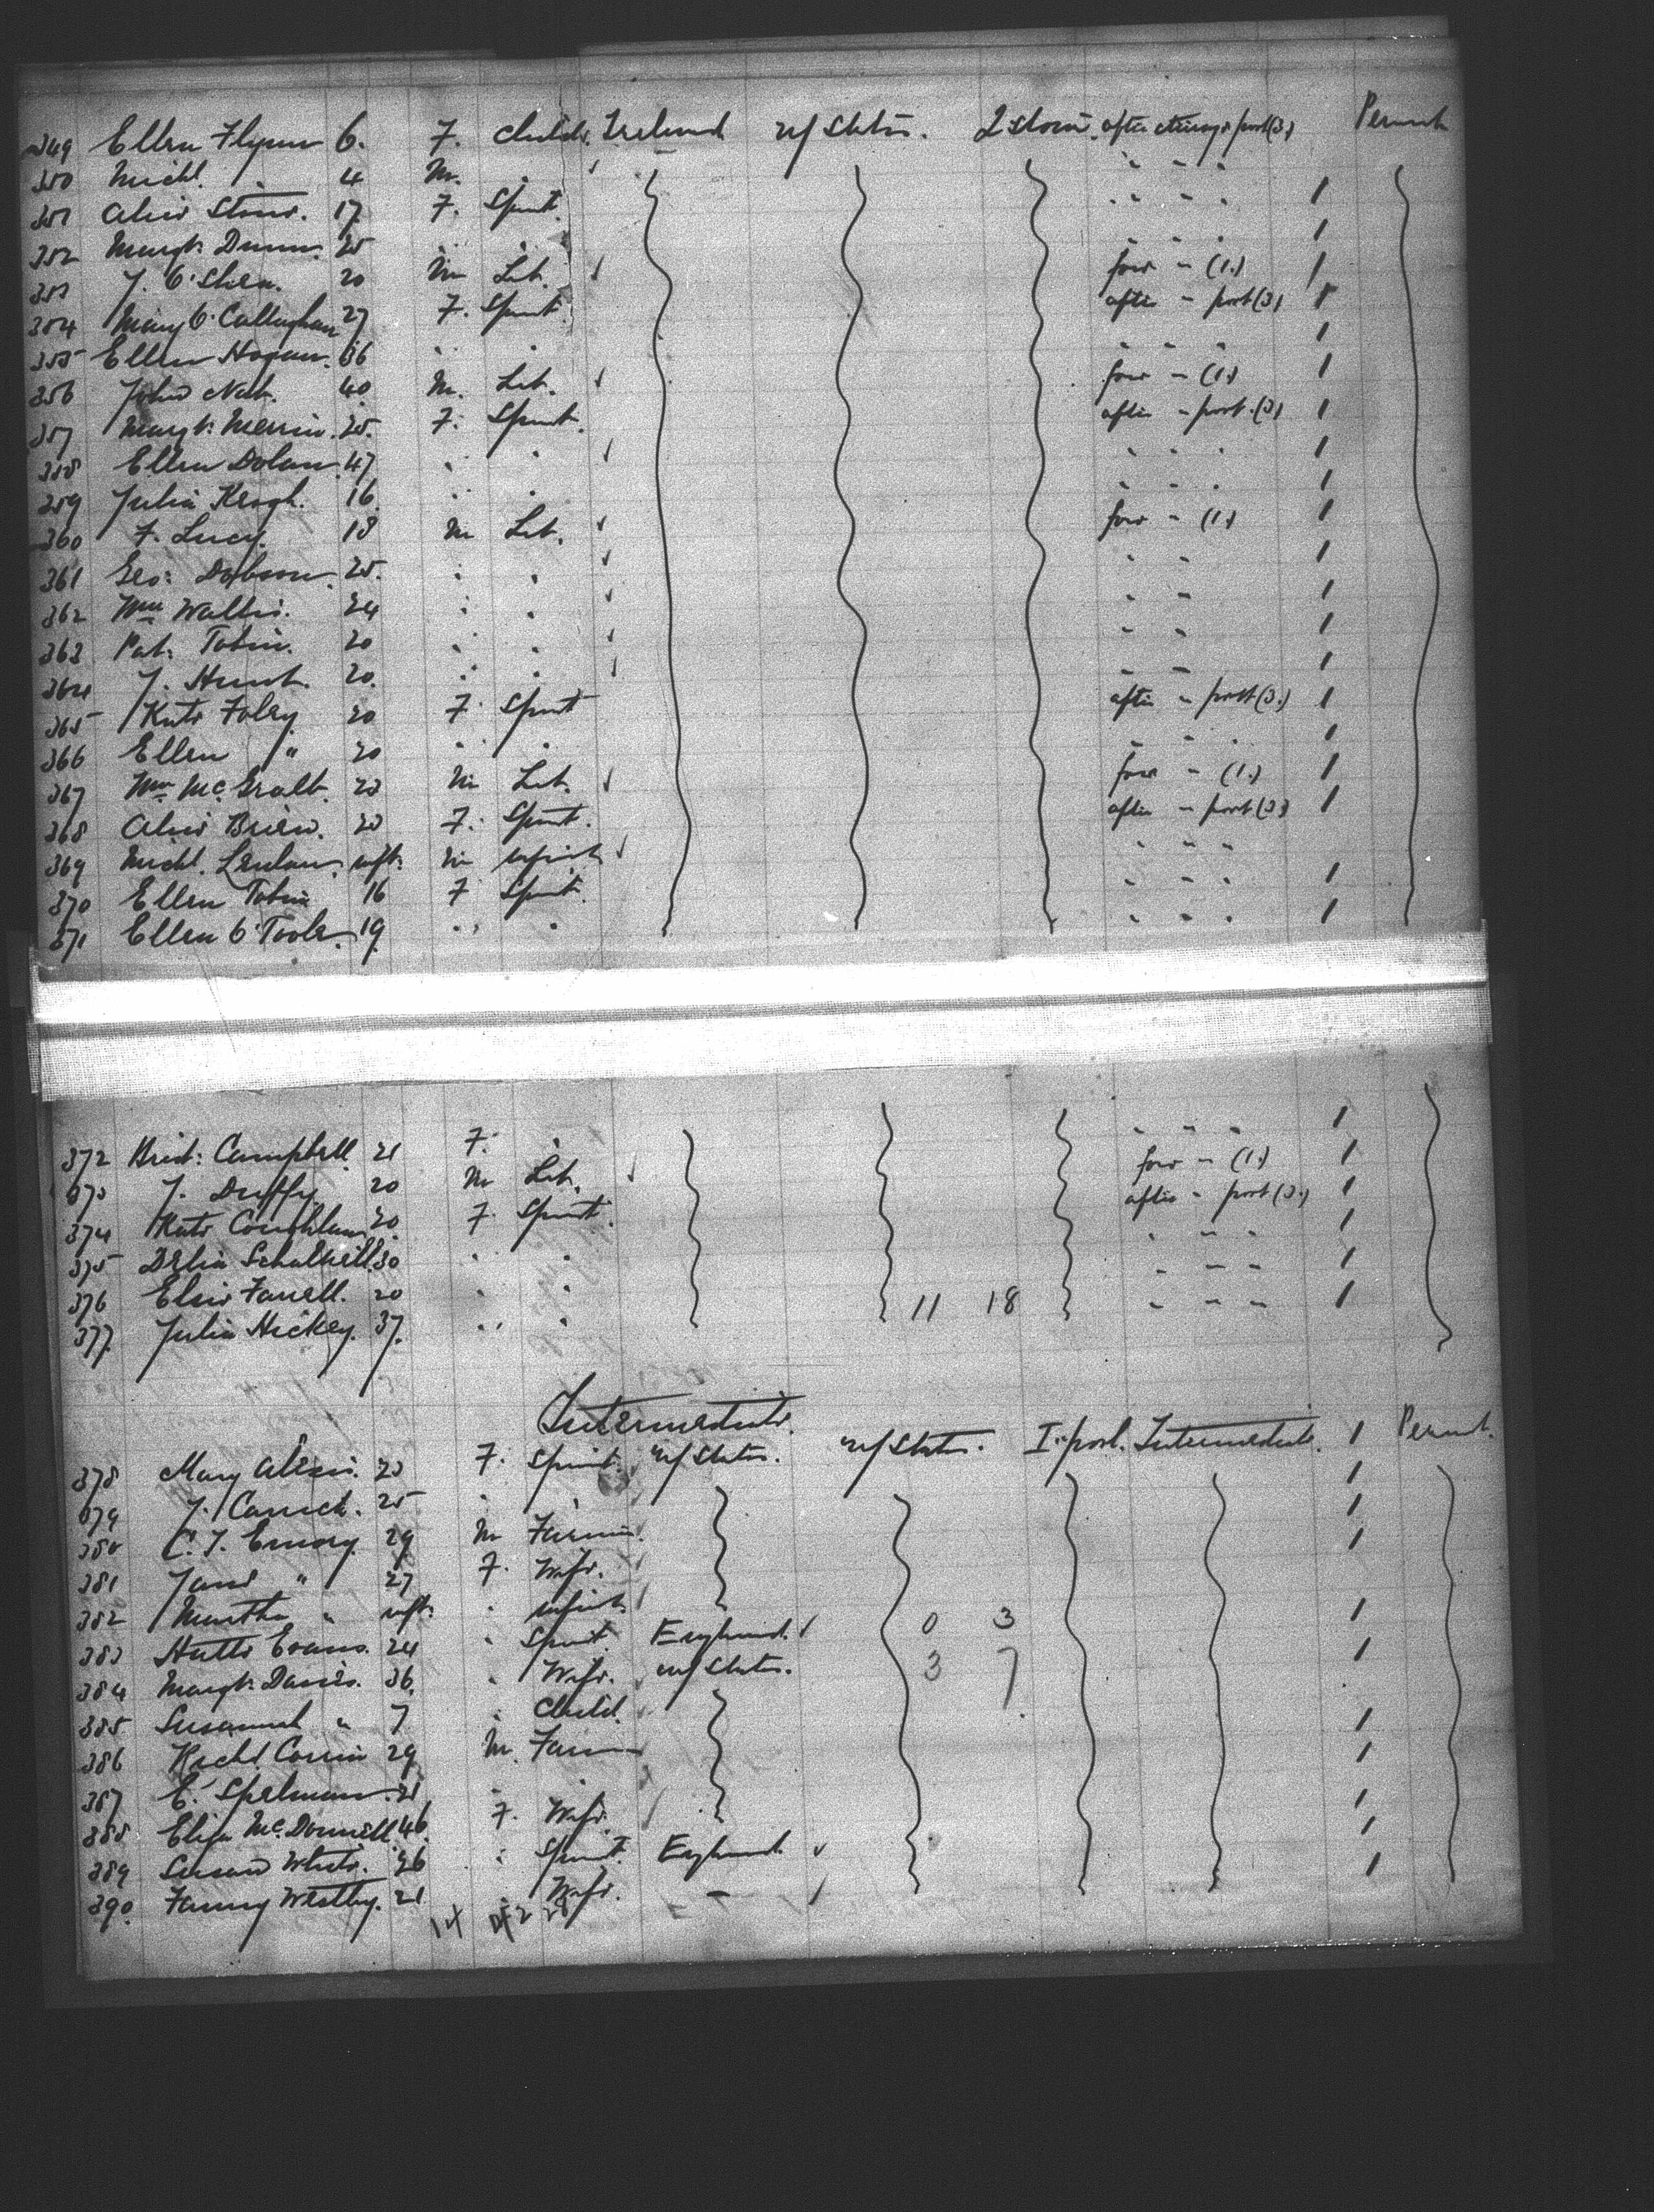 349 Ellen Flynn 6. F. Child. Ireland u/States. 2 store. after steerage port (3.) Permt
350 Michl. " 4 M. " " " "
351 Alice Stone. 17 F. Spinst. " " " " 1
352 Margt. Dunn. 25 " " " " " 1
353 J. O'Shea. 20 M Lab. for " (1.) 1
354 Mary O'Callaghan 27 F. Spinst. after " port (3) 1
355 Ellen Hogan. 36 " " " " " 1
356 John Nash. 40 M. Lab. for " (1.) 1
357 Margt. Merrin. 25. F. Spinst. after " port. (3) 1
358 Ellen Dolan 47 " " " " " 1
359 Julia Keogh. 16 " " " " " 1
360 F. Lucy. 18 M Lab. for " (1.) 1
361 Geo: Dobson 25. " " " " 1
362 Wm Wallis. 24 " " " " 1
363 Pat. Tobin. 20 " " " " 1
364 J. Hunt. 20. " " " " 1
365 Kate Foley 20 F. Spinst after " port (3.) 1
366 Ellen " 20 " " " " " 1
367 Wm McGrath. 23 M Lab. for " (1.) 1
368 Alice Brien. 20 F. Spinst. after " port (3) 1
369 Michl. Lenhan. inft. M infant " " "
370 Ellen Tobin 16 F Spinst. " " " 1
371 Ellen O'Toole. 19 " " " " " 1
372 Brid: Campbell. 21 F. " " " " 1
373 J. Duffy 20 M Lab. for " (1.) 1
374 Kate Coughlan 20. F. Spinst. after " port (3.) 1
375 Delia 30 " " " " " 1
376 Elsie Farrell. 20 " " " " " 1
377 Julia Hickey. 37. " " 11 18 " " " 1
Intermediate.
378 Mary 23 F. Spinst. u/States. u/States. I. port. Intermediate. 1 Permt.
379 J. Carrick. 25 " " 1
380 C. J. Emory. 29 M Farmer. 1
381 Jane " 27 F. Wife. 1
382 Martha " inft. " infant.
383 Hatte Evans. 24 " Spinst. England. 0 3 1
384 Margt. Davies. 36. " Wife. u/States. 3 7 1
385 Susannah " 7 " Child.
386 Richd. 29 M. Farmer 1
387 E. Spelman. 21 " " 1
388 Eliza McDonnell 46. F. Wife. 1
389 Susan White. 26 " Spinst. England. 1
390. Fanny Westby. 21 Wife. " 1